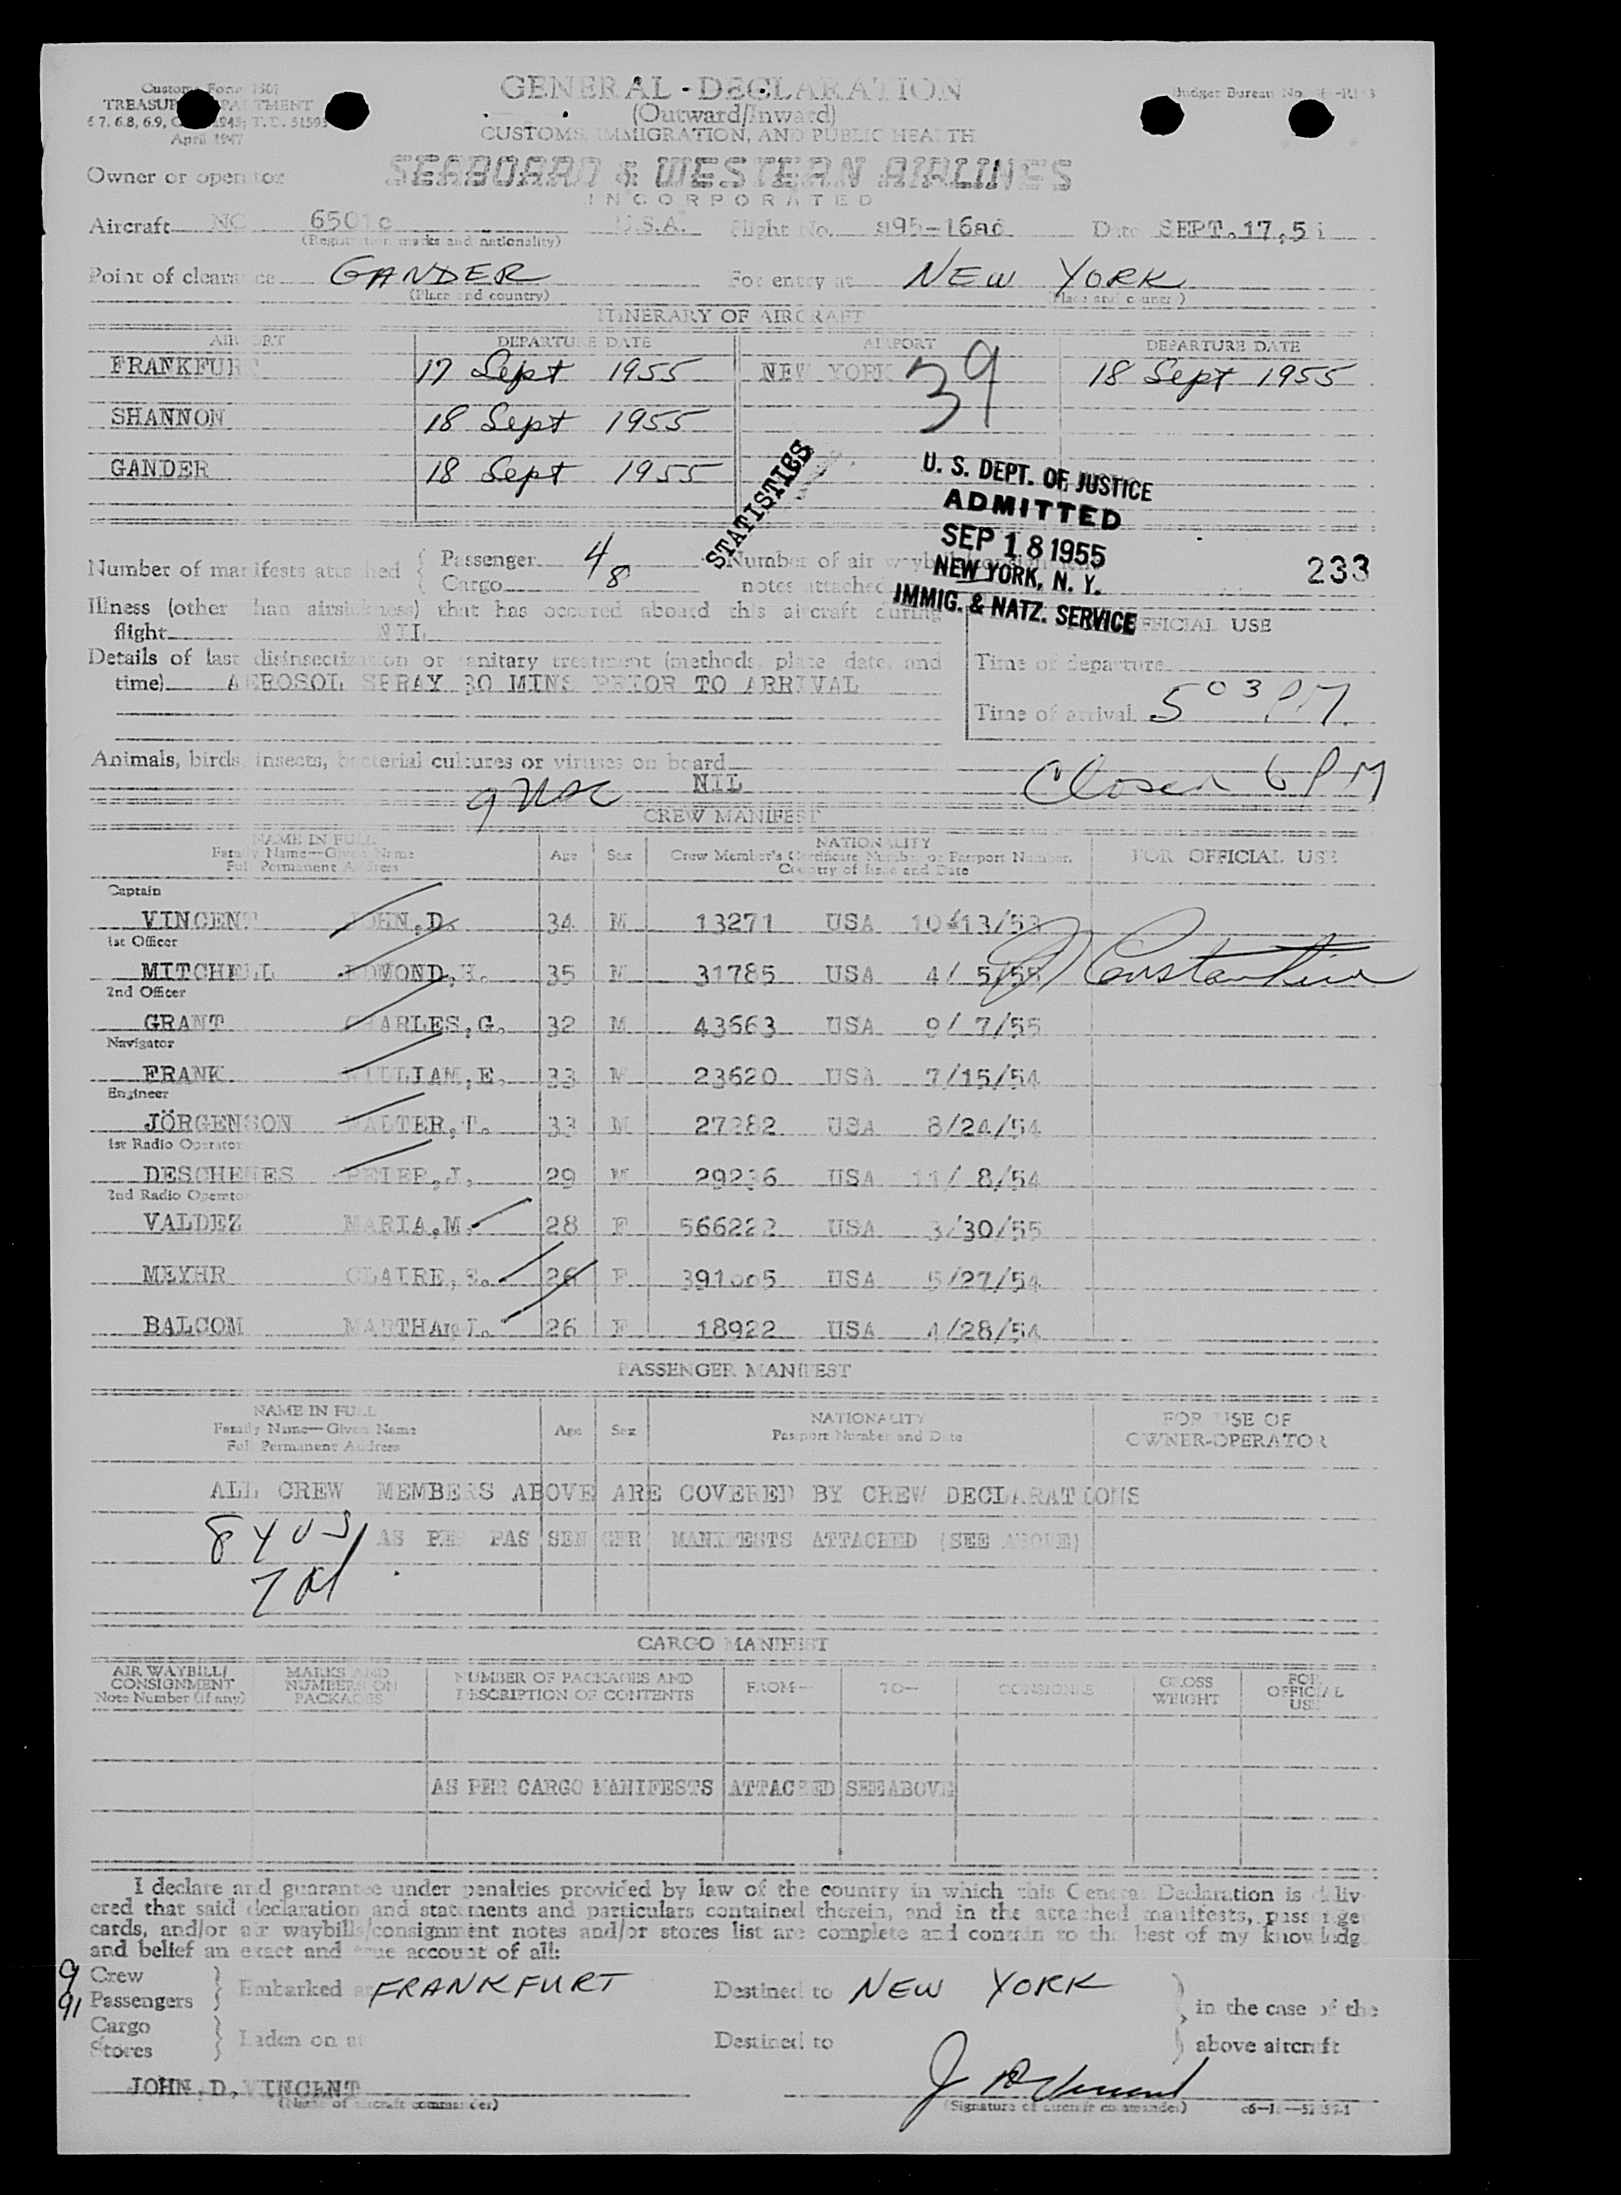 Customs Form
TREASURY DEPARTMENT
April 1947
GENERAL DECLARATION
(Outward/Inward)
CUSTOMS, IMMIGRATION, AND PUBLIC HEALTH
Budget Bureau No.
Owner or operator SEABOARD & WESTERN AIRLINES
INCORPORATED
Aircraft NC U.S.A. Flight No. Date SEPT. 17,
(Registration marks and nationality)
Point of clearance GANDER For entry at NEW YORK
(Place and country) (Place and country)
ITINERARY OF AIRCRAFT
AIRPORT DEPARTURE DATE AIRPORT DEPARTURE DATE
FRANKFURT 17 Sept 1955 NEW YORK 39 18 Sept 1955
SHANNON 18 Sept 1955
GANDER 18 Sept 1955
STATISTICS
U. S. DEPT. OF JUSTICE
ADMITTED
SEP 18 1955
NEW YORK, N. Y.
IMMIG. & NATZ. SERVICE
Number of manifests attached { Passenger 4 Number of air waybills 233
Cargo 8 notes attached
Illness (other than airsickness) that has occured aboard this aircraft during
flight NIL
OFFICIAL USE
Details of last disinsectization or sanitary treatment (methods, place, date, and
time) AEROSOL SPRAY 30 MINS PRIOR TO ARRIVAL
Time of departure
Time of arrival 5 03 PM
Animals, birds, insects, bacterial cultures or viruses on board
NIL
9 usc
Closed 6 PM
CREW MANIFEST
NAME IN FULL
Family Name—Given Name
Full Permanent Address
Age Sex
NATIONALITY
Crew Member's Certificate Number or Passport Number,
Country of Issue and Date
FOR OFFICIAL USE
Captain
VINCENT JOHN,D. 34 M 13271 USA 10/13/53
1st Officer
MITCHELL EDMOND,H. 35 M 31785 USA 4/ 5/55
Constantine
2nd Officer
GRANT CHARLES,G. 32 M 43663 USA 9/ 7/55
Navigator
FRANK WILLIAM,E. 33 M 23620 USA 7/15/54
Engineer
JÖRGENSON WALTER,T. 33 M 27282 USA 8/24/54
1st Radio Operator
DESCHENES PETER,J. 29 M 29236 USA 11/ 8/54
2nd Radio Operator
VALDEZ MARIA,M. 28 F 566222 USA 3/30/55
MEYHR CLAIRE,E. 26 F USA 5/27/54
BALCOM MARTHA, 26 F 18922 USA 4/28/54
PASSENGER MANIFEST
NAME IN FULL
Family Name—Given Name
Full Permanent Address
Age Sex
NATIONALITY
Passport Number and Date
FOR USE OF
OWNER-OPERATOR
ALL CREW MEMBERS ABOVE ARE COVERED BY CREW DECLARATIONS
84 US
AS PER PASSENGER MANIFESTS ATTACHED (SEE ABOVE)
7 al
CARGO MANIFEST
AIR WAYBILL/
CONSIGNMENT
Note Number (if any)
MARKS AND
NUMBERS ON
PACKAGES
NUMBER OF PACKAGES AND
DESCRIPTION OF CONTENTS
FROM—
TO—
CONSIGNEE
GROSS
WEIGHT
FOR
OFFICIAL
USE
AS PER CARGO MANIFESTS ATTACHED SEE ABOVE
I declare and guarantee under penalties provided by law of the country in which this General Declaration is deliv
ered that said declaration and statements and particulars contained therein, and in the attached manifests, passenger
cards, and/or air waybills/consignment notes and/or stores list are complete and contain to the best of my knowledg
and belief an exact and true account of all:
9 Crew
91 Passengers } Embarked at FRANKFURT Destined to NEW YORK } in the case of the
Cargo
Stores } Laden on at Destined to } above aircraft
JOHN,D,VINCENT J D Vincent
(Name of aircraft commander) (Signature of aircraft commander)